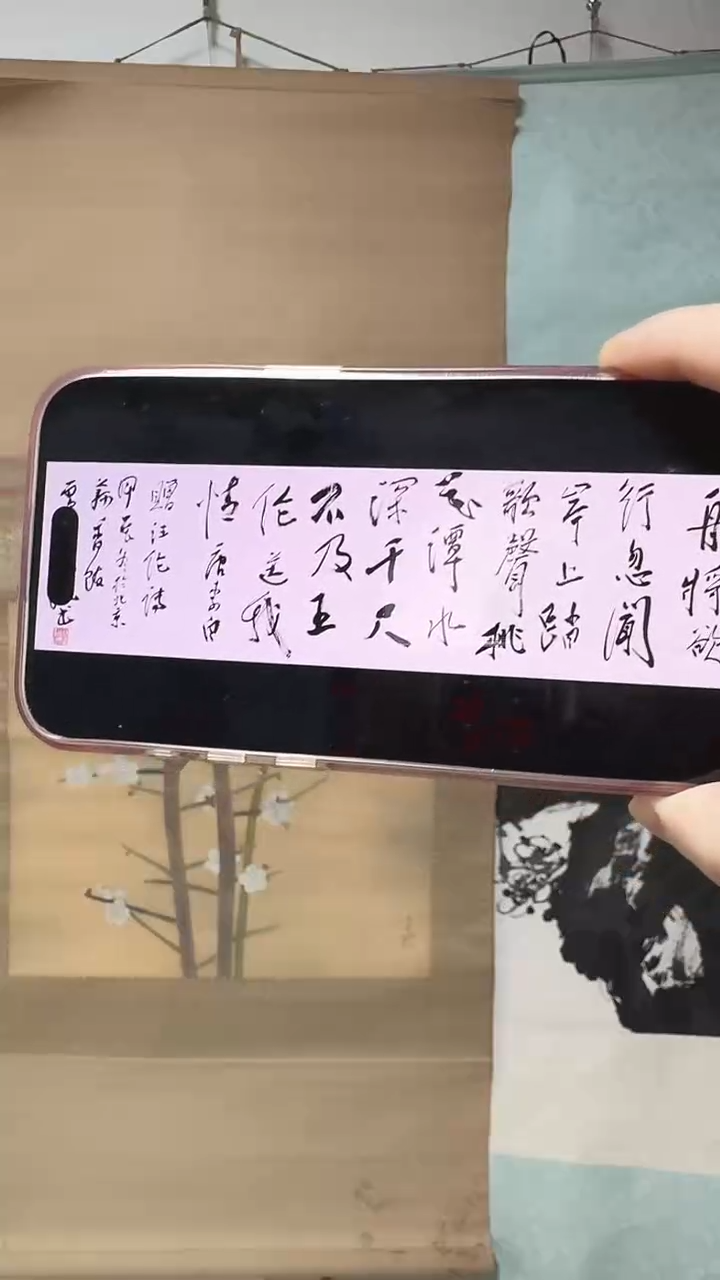 舟將欲
行忽聞
岸上踏
歌聲桃
花潭水
深千尺
不及王
伦送我
情唐李白
贈汪伦诗
甲辰冬於北京